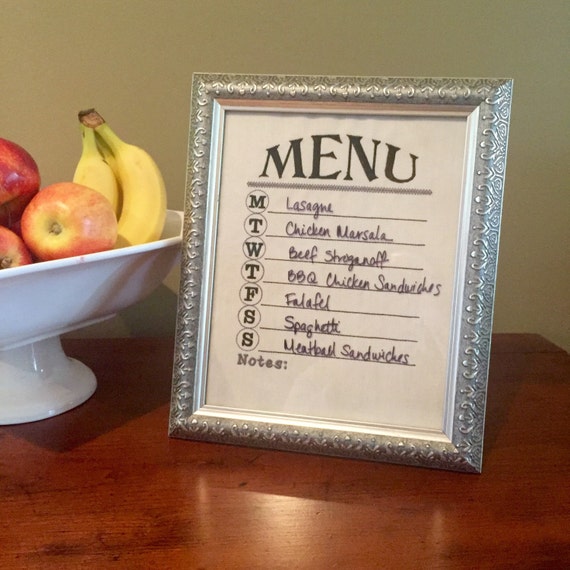 MENU
M Lasagne
T Chicken Marsala
W Beef Stroganoff
T BBQ Chicken Sandwiches
F Falafel
S Spaghetti
S Meatball Sandwiches
Notes: